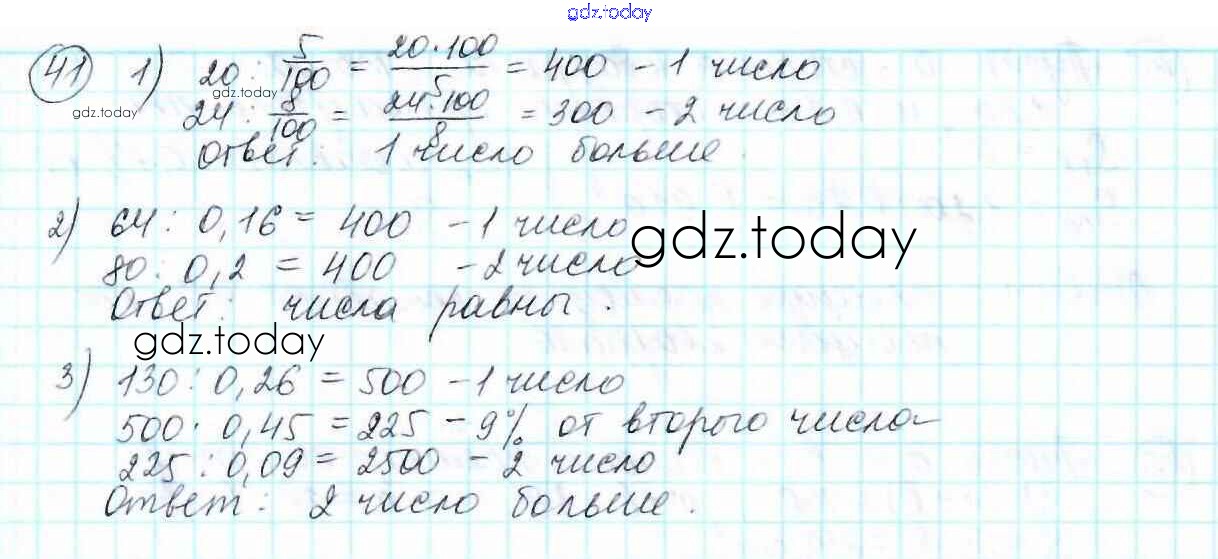 gdz.today
41 1) 20 : 5/100 = 20·100/5 = 400 – 1 число
gdz.today
24 : 8/100 = 24·100/8 = 300 – 2 число
Ответ: 1 число больше.
2) 64 : 0,16 = 400 – 1 число
gdz.today
80 : 0,2 = 400 – 2 число
Ответ: числа равны.
gdz.today
3) 130 : 0,26 = 500 – 1 число
500 · 0,45 = 225 – 9% от второго числа
225 : 0,09 = 2500 – 2 число
Ответ: 2 число больше.